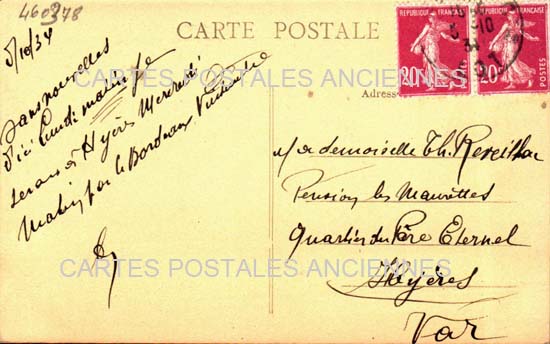 460378
CARTE POSTALE
5/10/34
REPUBLIQUE FRANÇAISE
REPUBLIQUE FRANÇAISE
20c
20c
POSTES
Adresse
Sans nouvelles
d'ici Lundi matin je
serais à Hyères Mercredi
Matin par le Bordeaux
Mademoiselle Th. Reveillon
Pension les Maurettes
Quartier du Père Eternel
Hyères
Var
CARTES POSTALES ANCIENNES
CARTES POSTALES ANCIENNES